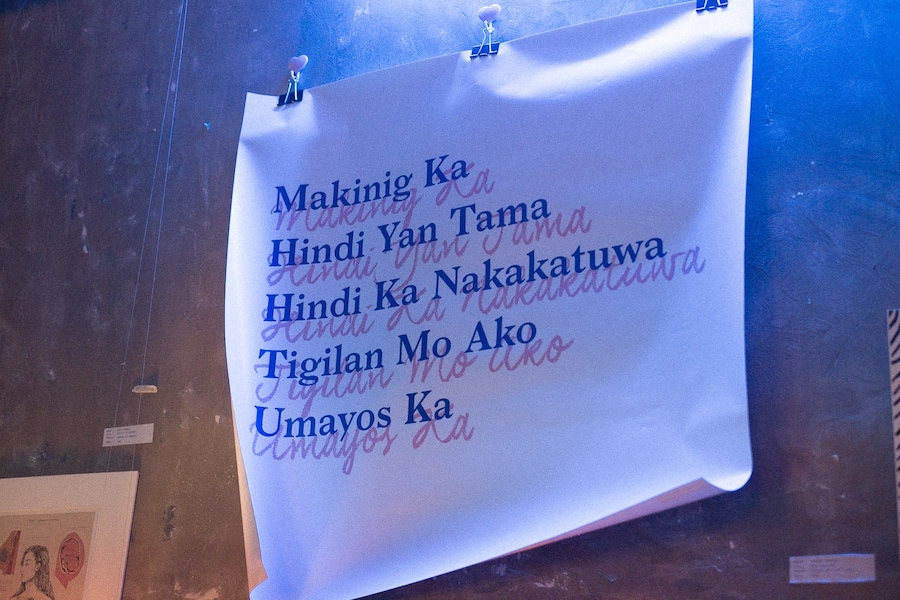 Makinig Ka
Makinig Ka
Hindi Yan Tama
Hindi Yan Tama
Hindi Ka Nakakatuwa
Hindi Ka Nakakatuwa
Tigilan Mo Ako
Tigilan Mo Ako
Umayos Ka
Umayos Ka